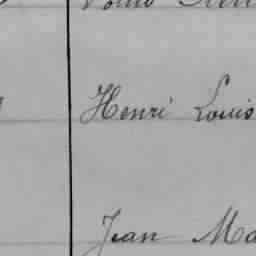 Henri Louis
Jean Ma